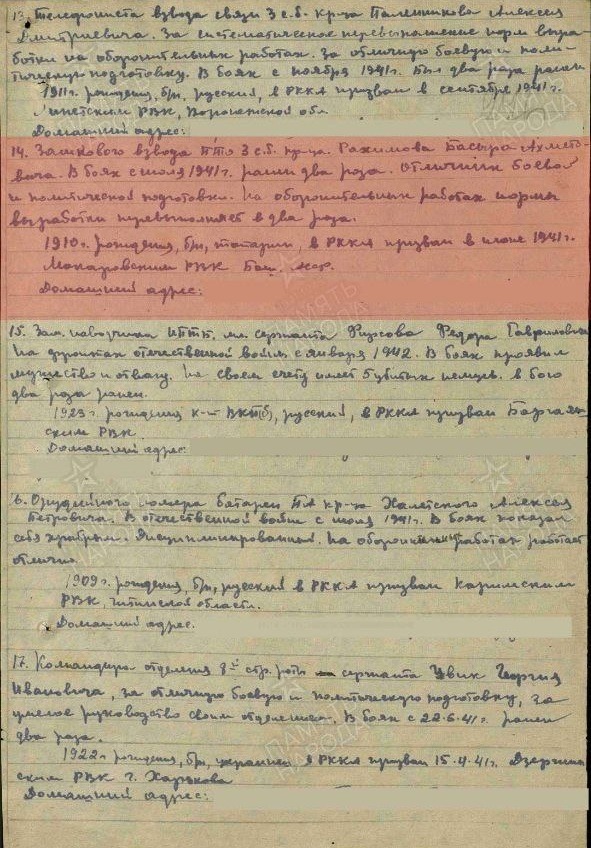 13. Телефониста взвода связи 3 с.б. кр-ца Паленникова Алексея
Дмитриевича. За систематическое перевыполнение норм выра-
ботки на оборонительных работах. За отличную боевую и поли-
тическую подготовку. В боях с ноября 1941 г. Был два раза ранен
1911 г. рождения, б/п, русский, в РККА призван в сентябре 1941 г.
РВК, Воронежской обл.
Домашний адрес:
14. взвода ПТО 3 с.б. кр-ца. Рахимова Басыра Ахмето-
вича. В боях с июля 1941 г. ранен два раза. Отличник боевой
и политической подготовки. На оборонительных работах нормы
выработки перевыполняет в два раза.
1910 г. рождения, б/п, татарин, в РККА призван в июне 1941 г.
Макаровским РВК Баш. АССР.
Домашний адрес:
15. Зам. наводчика мл. сержанта Фирсова Федора Гавриловича
На фронтах отечественной войны с января 1942. В боях проявил
мужество и отвагу. На своем счету имеет убитых немцев. в боях
два раза ранен.
1923 г. рождения к-т ВКП(б), русский, в РККА призван
ским РВК.
Домашний адрес
16. Орудийного номера батареи ПА кр-ца Халетского Алексея
Петровича. В отечественной войне с июля 1941 г. В боях показал
себя храбрым. Дисциплинированный. На оборонительных работах работает
отлично
1909 г. рождения, б/п, русский в РККА призван Карымским
РВК, читинской области.
Домашний адрес.
17. Командира отделения 8й стр. роты сержанта Увик Георгия
Ивановича, за отличную боевую и политическую подготовку, за
умелое руководство своим отделением. В боях с 22.6.41 г. ранен
два раза.
1922 г. рождения, б/п, украинец в РККА призван 15.4.41 г. Дзержин
ским РВК г. Харькова
Домашний адрес:
ПАМЯТЬ
НАРОДА